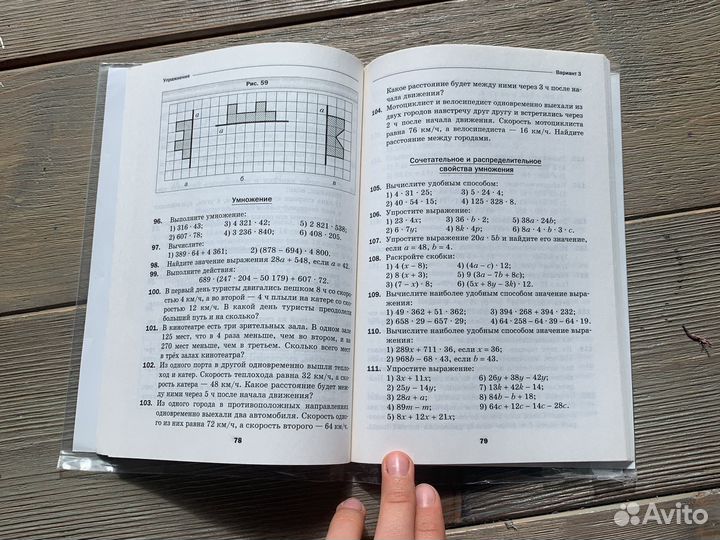 Упражнения
Рис. 59
а
а
а
а
б
в
Умножение
96. Выполните умножение:
1) 316 · 43; 3) 4 321 · 42; 5) 2 821 · 538;
2) 607 · 78; 4) 3 236 · 840; 6) 408 · 205.
97. Вычислите:
1) 389 · 64 + 4 361; 2) (878 − 694) · 4 800.
98. Найдите значение выражения 28a + 548, если a = 42.
99. Выполните действия:
689 · (247 · 204 − 50 179) + 607 · 72.
100. В первый день туристы двигались пешком 8 ч со скоро-
стью 4 км/ч, а во второй — 4 ч плыли на катере со ско-
ростью 12 км/ч. В какой день туристы преодолели
больший путь и на сколько?
101. В кинотеатре есть три зрительных зала. В одном зале
125 мест, что в 4 раза меньше, чем во втором, и на
270 мест меньше, чем в третьем. Сколько всего мест
в трёх залах кинотеатра?
102. Из одного порта в другой одновременно вышли тепло-
ход и катер. Скорость теплохода равна 32 км/ч, а ско-
рость катера — 48 км/ч. Какое расстояние будет меж-
ду ними через 5 ч после начала движения?
103. Из одного города в противоположных направлениях
одновременно выехали два автомобиля. Скорость одно-
го из них равна 72 км/ч, а скорость второго — 64 км/ч.
78
Вариант 3
Какое расстояние будет между ними через 3 ч после на-
чала движения?
104. Мотоциклист и велосипедист одновременно выехали из
двух городов навстречу друг другу и встретились через
2 ч после начала движения. Скорость мотоциклиста
равна 76 км/ч, а велосипедиста — 16 км/ч. Найдите
расстояние между городами.
Сочетательное и распределительное
свойства умножения
105. Вычислите удобным способом:
1) 4 · 31 · 25; 3) 5 · 24 · 4;
2) 40 · 54 · 15; 4) 125 · 328 · 8.
106. Упростите выражение:
1) 23 · 4x; 3) 36 · b · 2; 5) 38a · 24b;
2) 6 · 7y; 4) 8k · 4p; 6) 8a · 4 · b · 3 · c.
107. Упростите выражение 20a · 5b и найдите его значение,
если a = 48, b = 4.
108. Раскройте скобки:
1) 4 (x − 8); 4) (4a − c) · 12;
2) 8 (x + 3); 5) 9 (3a − 7b + 8c);
3) (7 − x) · 8; 6) (5x + 8y − 3k) · 12.
109. Вычислите наиболее удобным способом значение выра-
жения:
1) 49 · 362 + 51 · 362; 3) 394 · 268 + 394 · 232;
2) 658 · 29 − 657 · 29; 4) 64 · 258 − 64 · 39 − 64 · 19.
110. Вычислите наиболее удобным способом значение выра-
жения:
1) 289x + 711 · 36, если x = 36;
2) 968b − 68 · 43, если b = 43.
111. Упростите выражение:
1) 3x + 11x; 6) 26y + 38y − 42y;
2) 25y − 14y; 7) 13k + 42k − 14;
3) 28a + a; 8) 84b − b + 18;
4) 89m − m; 9) 64c + 12c − 14c − 28c.
5) 8x + 12x + 21x;
79
Avito